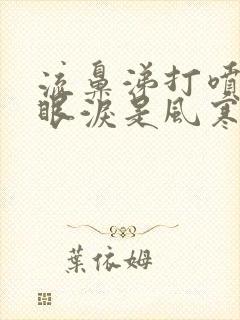 流鼻涕打噴
眼淚是風寒
葉依姆